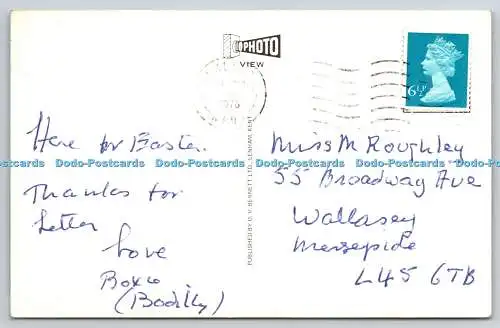 PHOTO
VIEW
1976
6½P
Here for Easter.
Thanks for
letter
Love
(Bodily)
PUBLISHED BY D. V. BENNETT LTD., LENHAM, KENT
Miss M Roughley
55 Broadway Ave
Wallasey
Merseyside
L45 6TB
Dodo-Postcards Dodo-Postcards Dodo-Postcards Dodo-Postcards Dodo-Postcards Dodo-Postcards